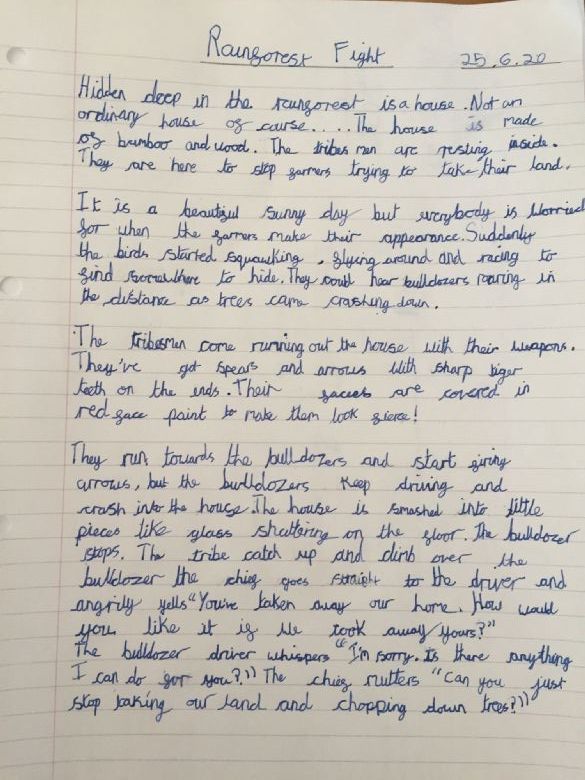 Rainforest Fight 25.6.20
Hidden deep in the rainforest is a house. Not an
ordinary house of course.... The house is made
of bumboo and wood. The tribes men are resting inside.
They are here to stop farmers trying to take their land.
It is a beautiful sunny day but everybody is worried
for when the farmers make their appearance. Suddenly
the birds started squawking, flying around and racing to
find somewhere to hide. They could hear bulldozers roaring in
the distance as trees came crashing down.
The tribesmen come running out the house with their weapons.
They've got spears and arrows with sharp tiger
teeth on the ends. Their faces are covered in
red face paint to make them look fierce!
They run towards the bulldozers and start firing
arrows, but the bulldozers keep driving and
crash into the house. The house is smashed into little
pieces like glass shattering on the floor. The bulldozer
stops. The tribe catch up and climb over the
bulldozer the chief goes straight to the driver and
angrily yells "You've taken away our home. How would
you like it if we took away yours?"
The bulldozer driver whispers "I'm sorry. Is there anything
I can do for you?" The chief mutters "Can you just
stop taking our land and chopping down trees?"